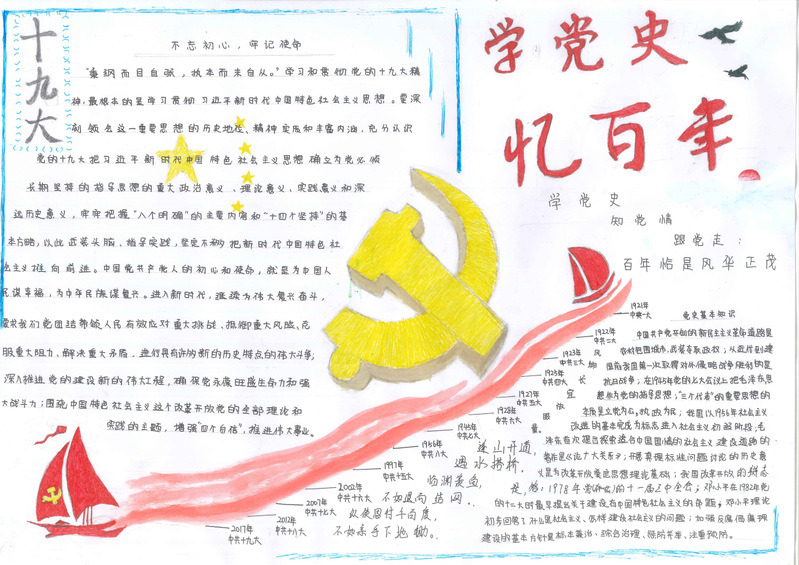 十九大
不忘初心，牢记使命
"秉纲而目自张，执本而末自从。"学习和贯彻党的十九大精
神，最根本的是学习贯彻习近平新时代中国特色社会主义思想。要深
刻领会这一重要思想的历史地位、精神实质和丰富内涵，充分认识
党的十九大把习近平新时代中国特色社会主义思想确立为党必须
长期坚持的指导思想的重大政治意义、理论意义、实践意义和深
远历史意义，牢牢把握"八个明确"的主要内容和"十四个坚持"的基
本方略，以此武装头脑、指导实践，坚定不移把新时代中国特色社
会主义推向前进。中国党共产党人的初心和使命，就是为中国人
民谋幸福，为中华民族谋复兴。进入新时代，继续为伟大复兴奋斗，
要求我们党团结带领人民有效应对重大挑战、抵御重大风险、克
服重大阻力、解决重大矛盾，进行具有许多新的历史特点的伟大斗争；
深入推进党的建设新的伟大工程，确保党永葆旺盛生命力和强
大战斗力；围绕中国特色社会主义这个改革开放党的全部理论和
实践的主题，增强"四个自信"，推进伟大事业。
学党史
忆百年
学党史
知党情
跟党走：
百年恰是风华正茂
1921年
中共一大
1922年
中共二大
1923年
中共三大
1925年
中共四大
1927年
中共五大
1928年
中共六大
1945年
中共七大
1956年
中共八大
1997年
中共十五大
2002年
中共十六大
2007年
中共十七大
2012年
中共十八大
2017年
中共十九大
风
物
长
宜
放
眼
量
逢山开道，
遇水搭桥，
临渊羡鱼，
不如退向结网，
以使回村千百度，
不如亲手下地锄。
党史基本知识
中国共产党开创的新民主主义革命道路是
农村包围城市、武装夺取政权；从此创建
国家我国第一次取得对外侵略战争胜利的是
抗日战争；在1945年党的七大会议上把毛泽东思
想作为党的指导思想；"三个代表"的重要思想的
本质是立党为公，执政为民；我国以1956年社会主义
改造的基本完成为标志进入社会主义初级阶段；毛
泽东在处理岂探索适合中国国情的社会主义建设道路的
著作是《论十大关系》；开展真理标准问题讨论的历史意
义是为改革开放奠定思想理论基础；我国改革开放的标志
是，指：1978年党的十一届三中全会；邓小平在1982年党
的十二大的最早提出关于建设有中国特色社会主义的命题。邓小平理论
初步回答了什么是社会主义、怎样建设社会主义的问题；加强反腐倡廉
建设的基本方针是标本兼治、综合治理、惩防并举、注重预防。